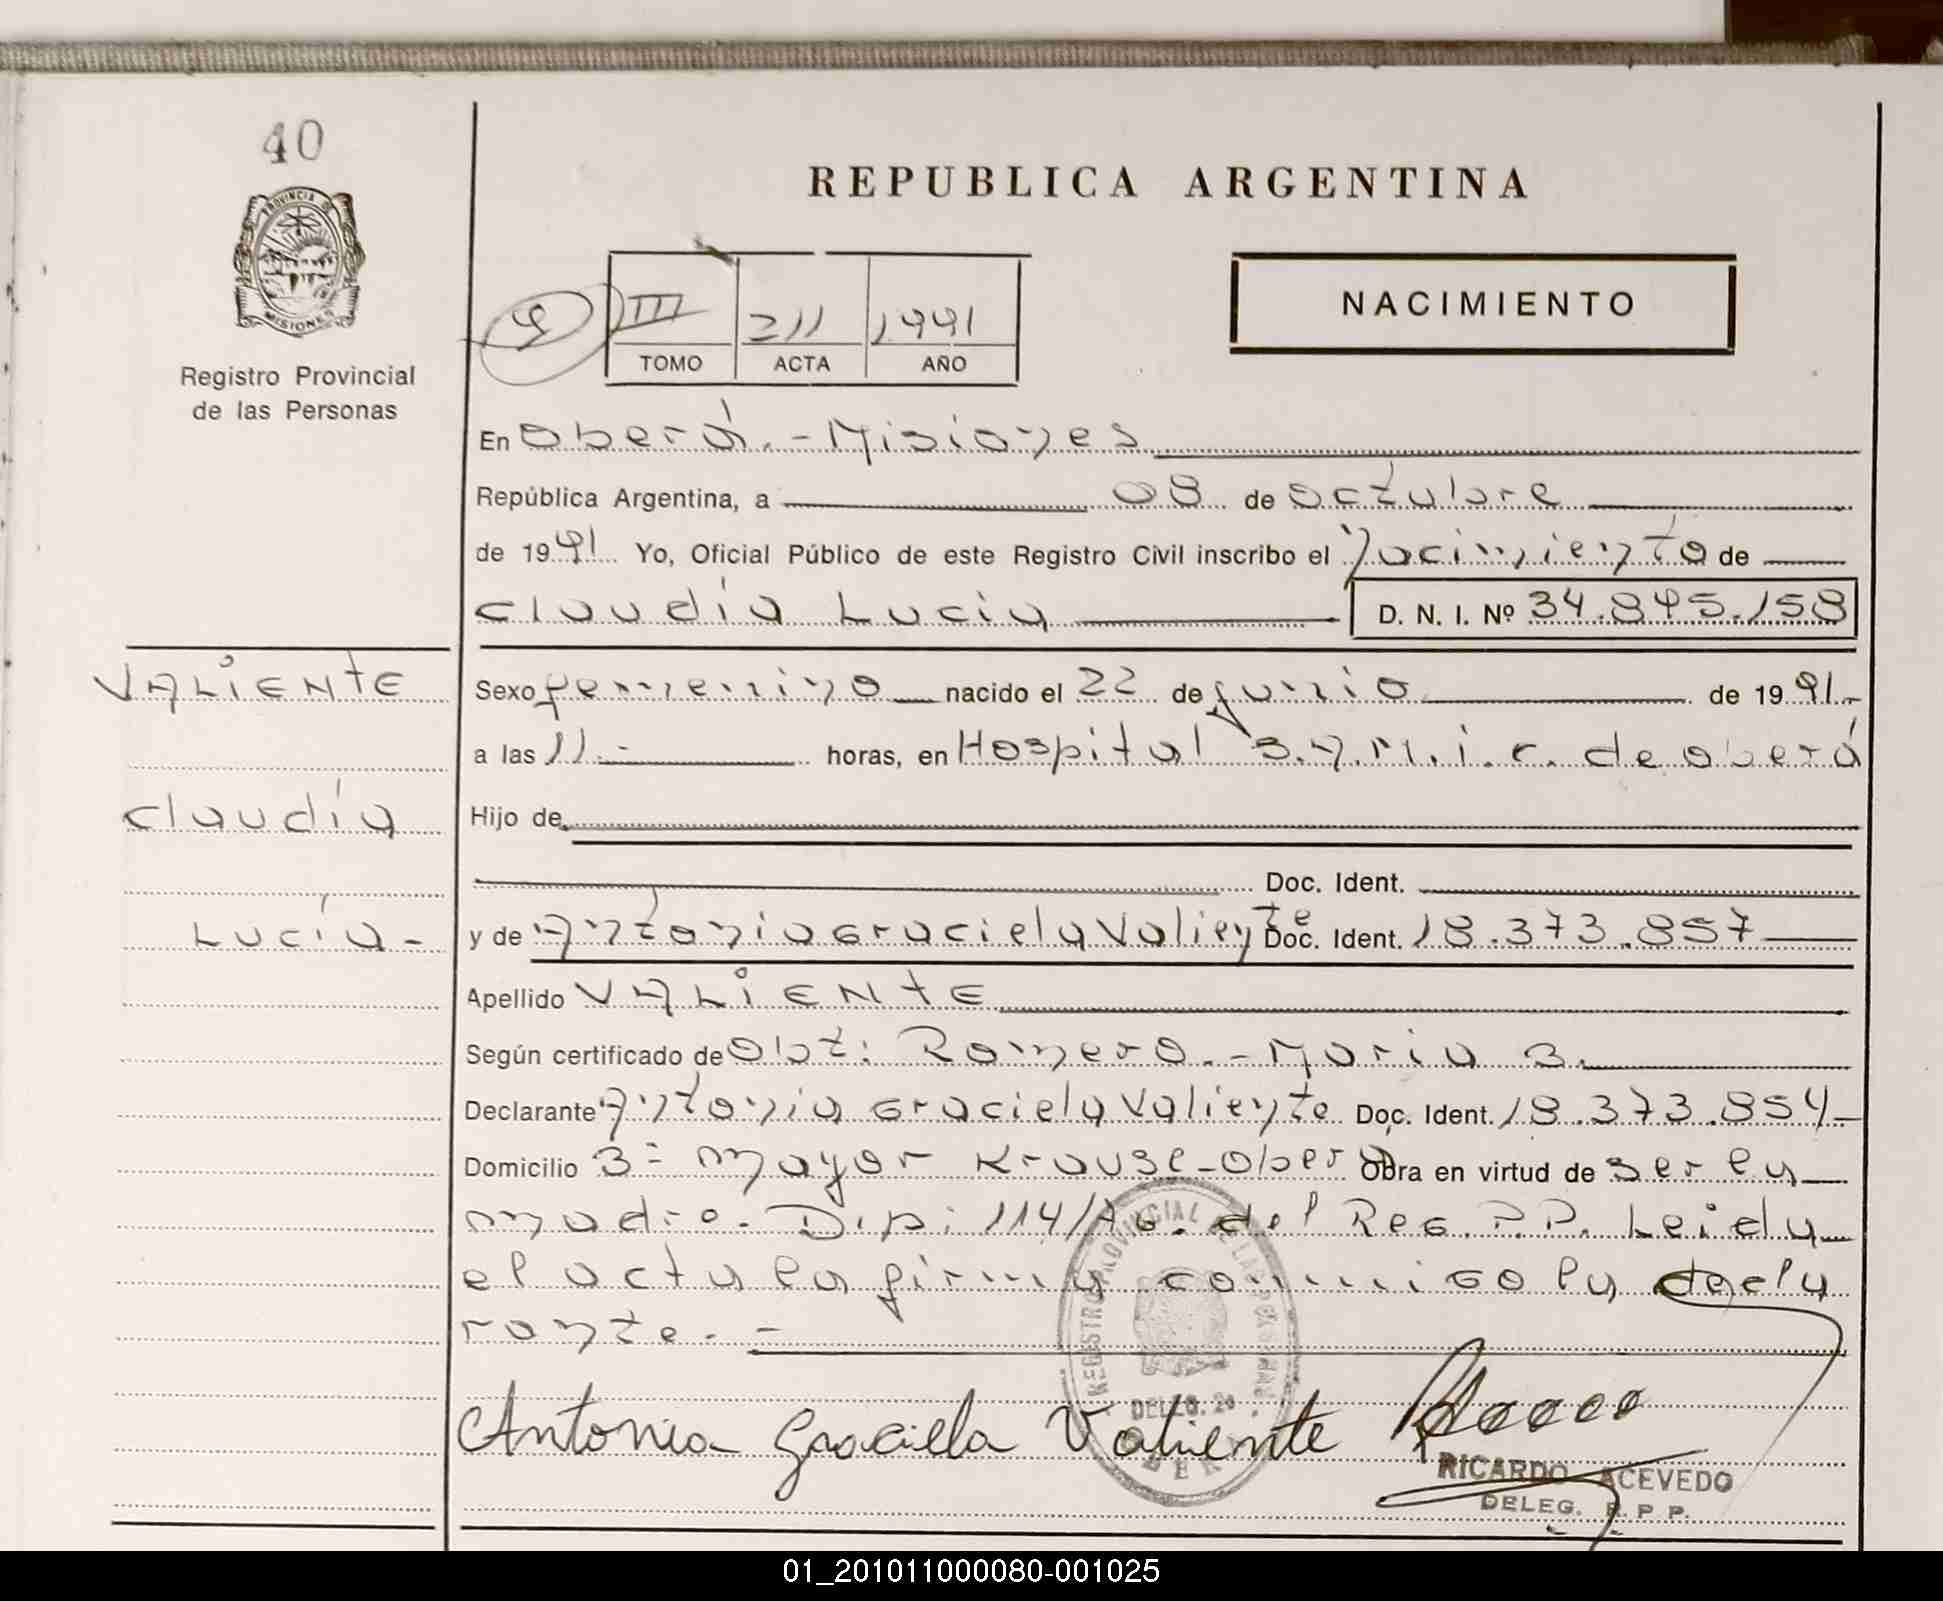 40
REPUBLICA ARGENTINA
PROVINCIA DE
MISIONES
Registro Provincial
de las Personas
9
III 211 1991
TOMO ACTA AÑO
NACIMIENTO
En Oberá.- Misiones
República Argentina, a 08 de octubre
de 1991 Yo, Oficial Público de este Registro Civil inscribo el Nacimiento de
Claudia Lucia D. N. I. Nº 34.845.158
VALIENTE
Claudia
Lucía-
Sexo femenino nacido el 22 de junio de 1991.-
a las 11.- horas, en Hospital S.A.M.i.c. de oberá
Hijo de
Doc. Ident.
y de Antonia Graciela Valiente Doc. Ident. 18.373.857
Apellido VALIENTE
Según certificado de Obt: Romero.- Maria
Declarante Antonia Graciela Valiente Doc. Ident. 18.373.854
Domicilio mayor Krause-Oberá Obra en virtud de ser la
madre. Disp: 114/ del Reg. P.P. Leida
el acta la firma conmigo la decla
rante.-
REGISTRO PROVINCIAL DE LAS PERSONAS
DELEG. 2a
OBERA
Antonia Graciela Valiente
RICARDO ACEVEDO
DELEG. R. P. P.
01_201011000080-001025